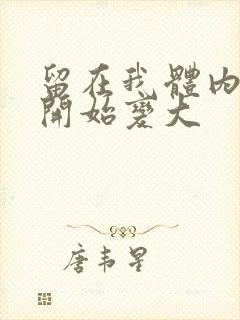 留在我體内
開始變大
唐韦星